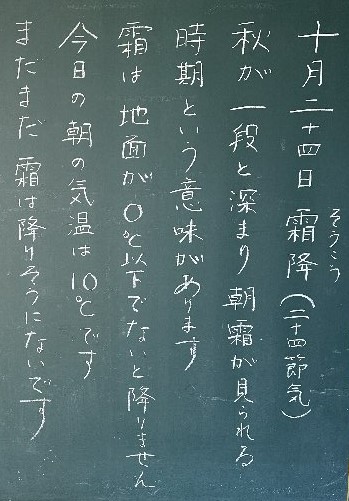 十月二十四日 霜降（二十四節気）
そうこう
秋が一段と深まり朝霜が見られる
時期という意味があります
霜は地面が0℃以下でないと降りません
今日の朝の気温は10℃です
まだまだ霜は降りそうにないです